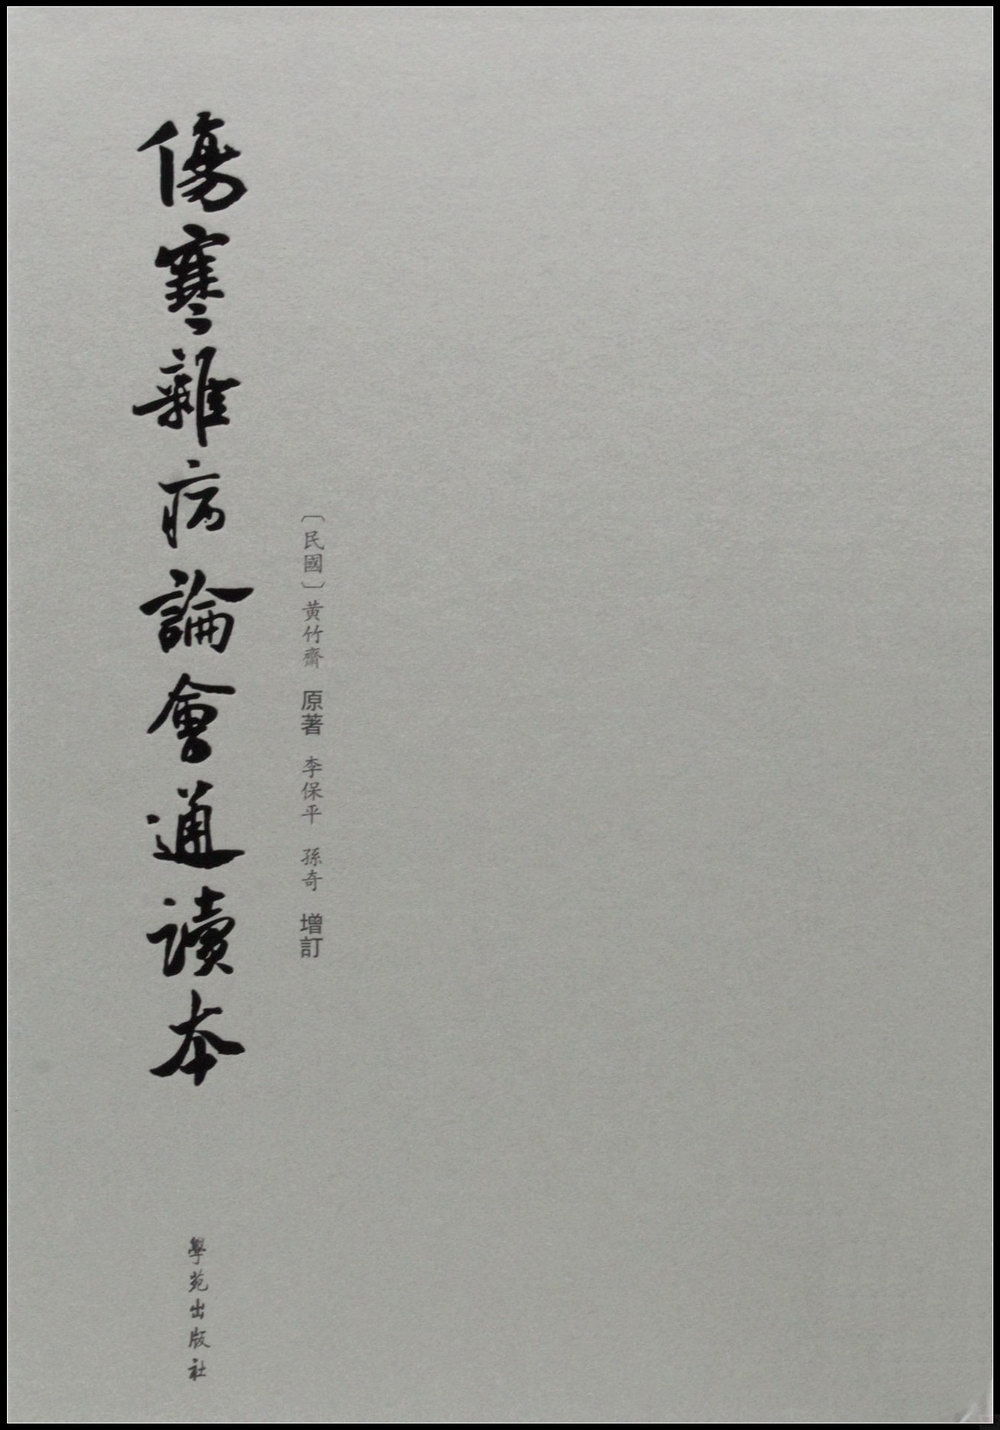 傷寒雜病論會通讀本
〔民國〕黄竹齋 原著 李保平 孫奇 增訂
學苑出版社